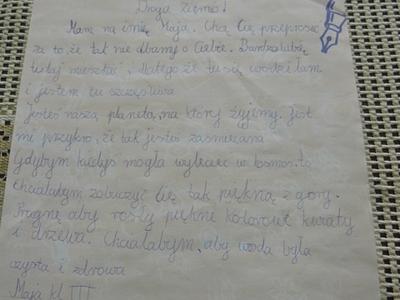 Droga Ziemio!
Mam na imię Maja. Chcę Cię przeprosić
za to, że tak nie dbamy o Ciebie. Bardzo lubię
tutaj mieszkać, dlatego że tu się urodziłam
i jestem tu szczęśliwa
Jesteś naszą planetą, na której żyjemy. Jest
mi przykro, że tak jesteś zaśmiecana
Gdybym kiedyś mogła wylecieć w kosmos, to
chciałabym zobaczyć Cię tak piękną z góry.
Pragnę aby rosły piękne kolorowe kwiaty
i drzewa. Chciałabym, aby woda była
czysta i zdrowa
Maja kl III